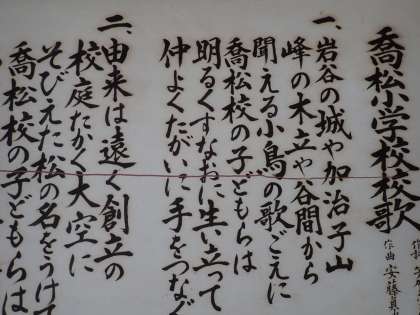 喬松小学校校歌
作曲 安藤真
一、岩谷の城や加治子山
峰の木立や谷間から
聞える小鳥の歌ごえに
喬松校の子どもらは
明るくすなおに生い立って
仲よくたがいに手をつなぐ
二、由来は遠く創立の
校庭たかく大空に
そびえた松の名をうけて
喬松校の子どもらは